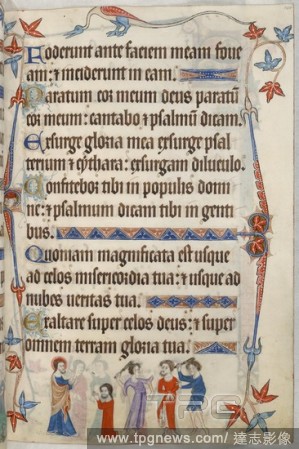 Foderunt ante faciem meam foue
am: ⁊ inciderunt in eam.
Paratum cor meum deus paratū
cor meum: cantabo ⁊ psalmū dicam.
Exsurge gloria mea exsurge psal
terium ⁊ cythara: exsurgam diluculo.
Confitebor tibi in populis domi
ne: ⁊ psalmum dicam tibi in genti
bus.
Quoniam magnificata est usque
ad celos misericordia tua: ⁊ usque ad
nubes ueritas tua.
Exaltare super celos deus: ⁊ super
omnem terram gloria tua.
TPG
www.tpgnews.com/ 達志影像